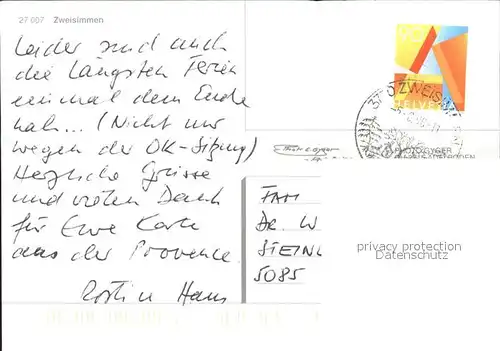 27 007 Zweisimmen
Leider sind auch
die längsten Ferien
einmal dem Ende
nah... (Nicht nur
wegen der OK-Sitzung)
Herzliche Grüsse
und vielen Dank
für Eure Karte
aus der Provence.
Hans
90
HELVE
3770 ZWEISIM
PHOTO GYGER
FAM
DR. W
STEINL
5085
privacy protection
Datenschutz